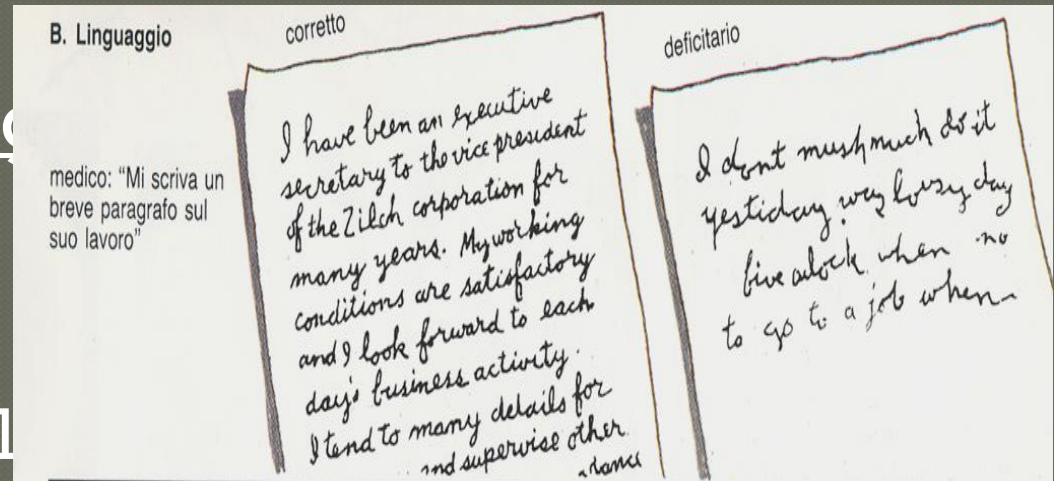 B. Linguaggio
medico: "Mi scriva un
breve paragrafo sul
suo lavoro"
corretto
I have been an executive
secretary to the vice president
of the Zilch corporation for
many years. My working
conditions are satisfactory
and I look forward to each
day's business activity.
I tend to many details for
and supervise other
deficitario
I dont mush much do it
yestiday way lousy day
five adock when no
to go to a job when